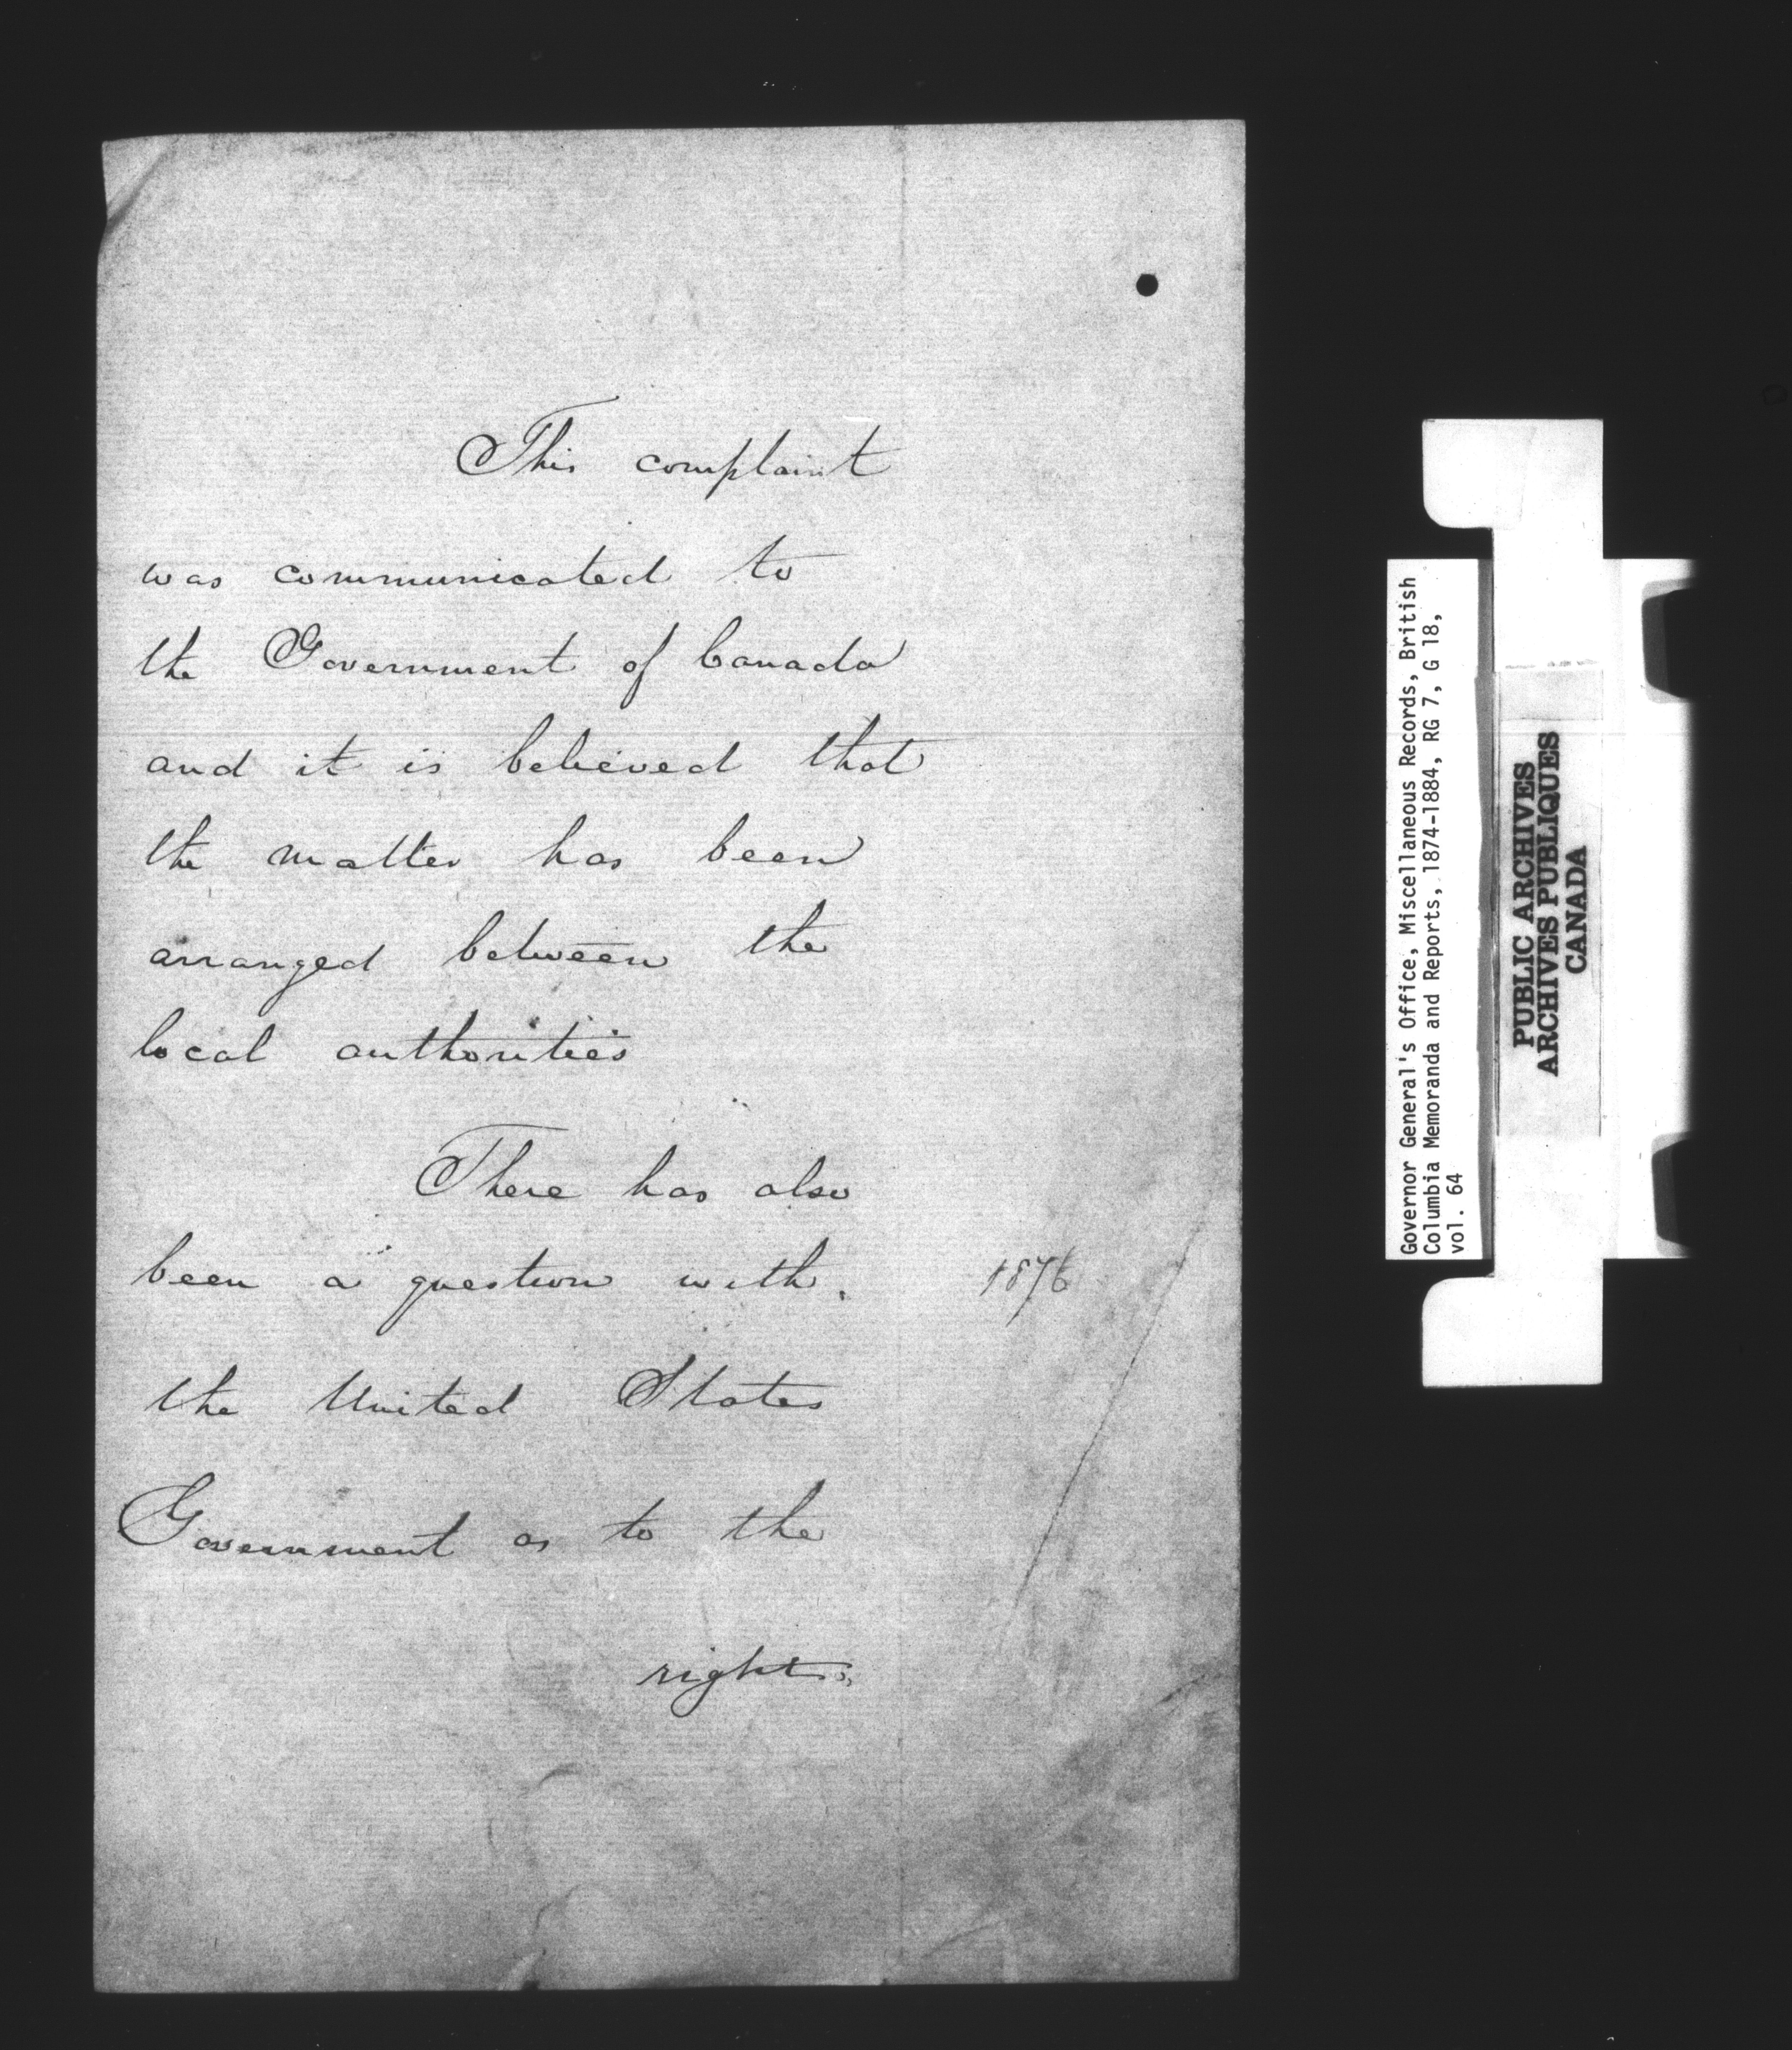 This complaint
was communicated to
the Government of Canada
and it is believed that
the matter has been
arranged between the
local authorities
There has also
been a question with
1876
the United States
Government as to the
rights
Governor General's Office, Miscellaneous Records, British
Columbia Memoranda and Reports, 1874-1884, RG 7, G 18,
vol. 64
PUBLIC ARCHIVES
ARCHIVES PUBLIQUES
CANADA